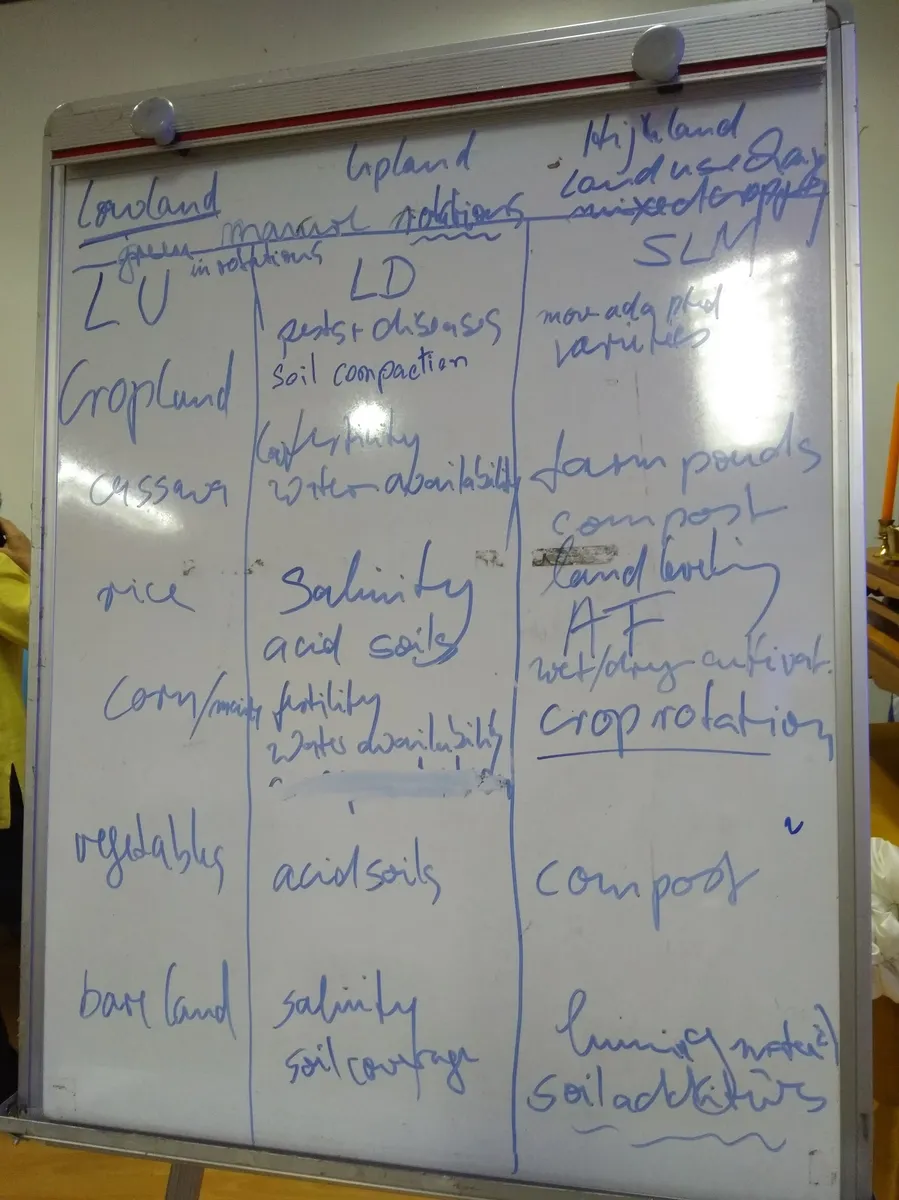 Lowland
Upland
Highland
land use
mixed cropping
green manure rotations
in rotations
LU
LD
SLM
pests + diseases
more adapted
soil compaction
varieties
Cropland
fertility
cassava
water availability
farm ponds
compost
rice
Salinity
land leveling
acid soils
AF
wet/dry cultivat.
Corn/maize
fertility
crop rotation
water availability
vegetables
acid soils
compost
bare land
salinity
liming material
soil coverage
soil additives